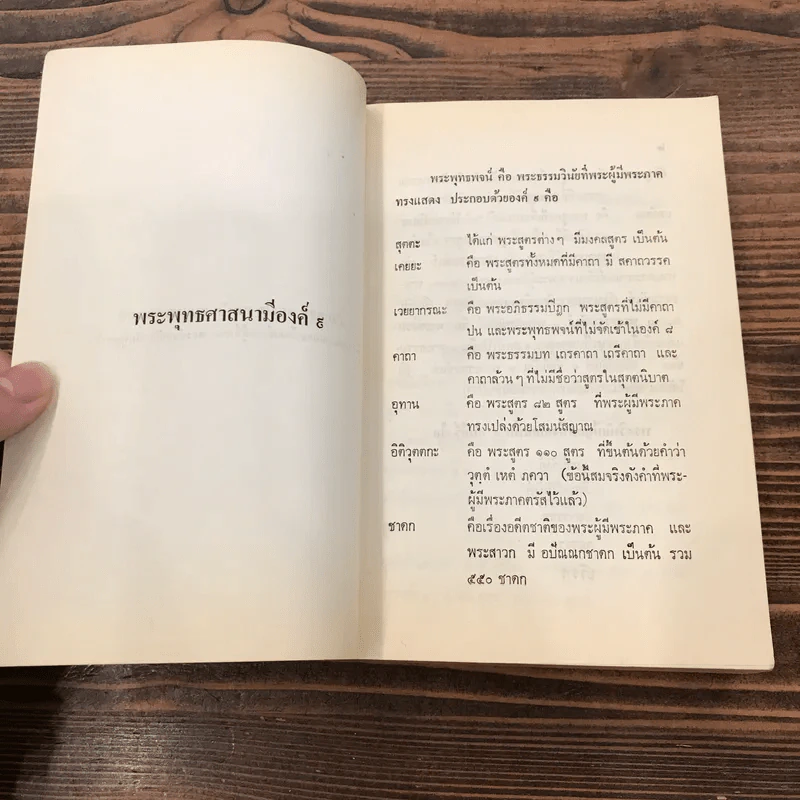 พระพุทธศาสนามีองค์ ๙
พระพุทธพจน์ คือ พระธรรมวินัยที่พระผู้มีพระภาค
ทรงแสดง ประกอบด้วยองค์ ๙ คือ
สุตตะ ได้แก่ พระสูตรต่างๆ มีมงคลสูตร เป็นต้น
เคยยะ คือ พระสูตรทั้งหมดที่มีคาถา มี สคาถวรรค
เป็นต้น
เวยยากรณะ คือ พระอภิธรรมปิฎก พระสูตรที่ไม่มีคาถา
ปน และพระพุทธพจน์ที่ไม่จัดเข้าในองค์ ๘
คาถา คือ พระธรรมบท เถรคาถา เถรีคาถา และ
คาถาล้วนๆ ที่ไม่มีชื่อว่าสูตรในสุตตนิบาต
อุทาน คือ พระสูตร ๘๒ สูตร ที่พระผู้มีพระภาค
ทรงเปล่งด้วยโสมนัสญาณ
อิติวุตตกะ คือ พระสูตร ๑๑๐ สูตร ที่ขึ้นต้นด้วยคำว่า
วุตฺตํ เหตํ ภควา (ข้อนี้สมจริงดังคำที่พระ-
ผู้มีพระภาคตรัสไว้แล้ว)
ชาดก คือเรื่องอดีตชาติของพระผู้มีพระภาค และ
พระสาวก มี อปัณณกชาดก เป็นต้น รวม
๕๕๐ ชาดก